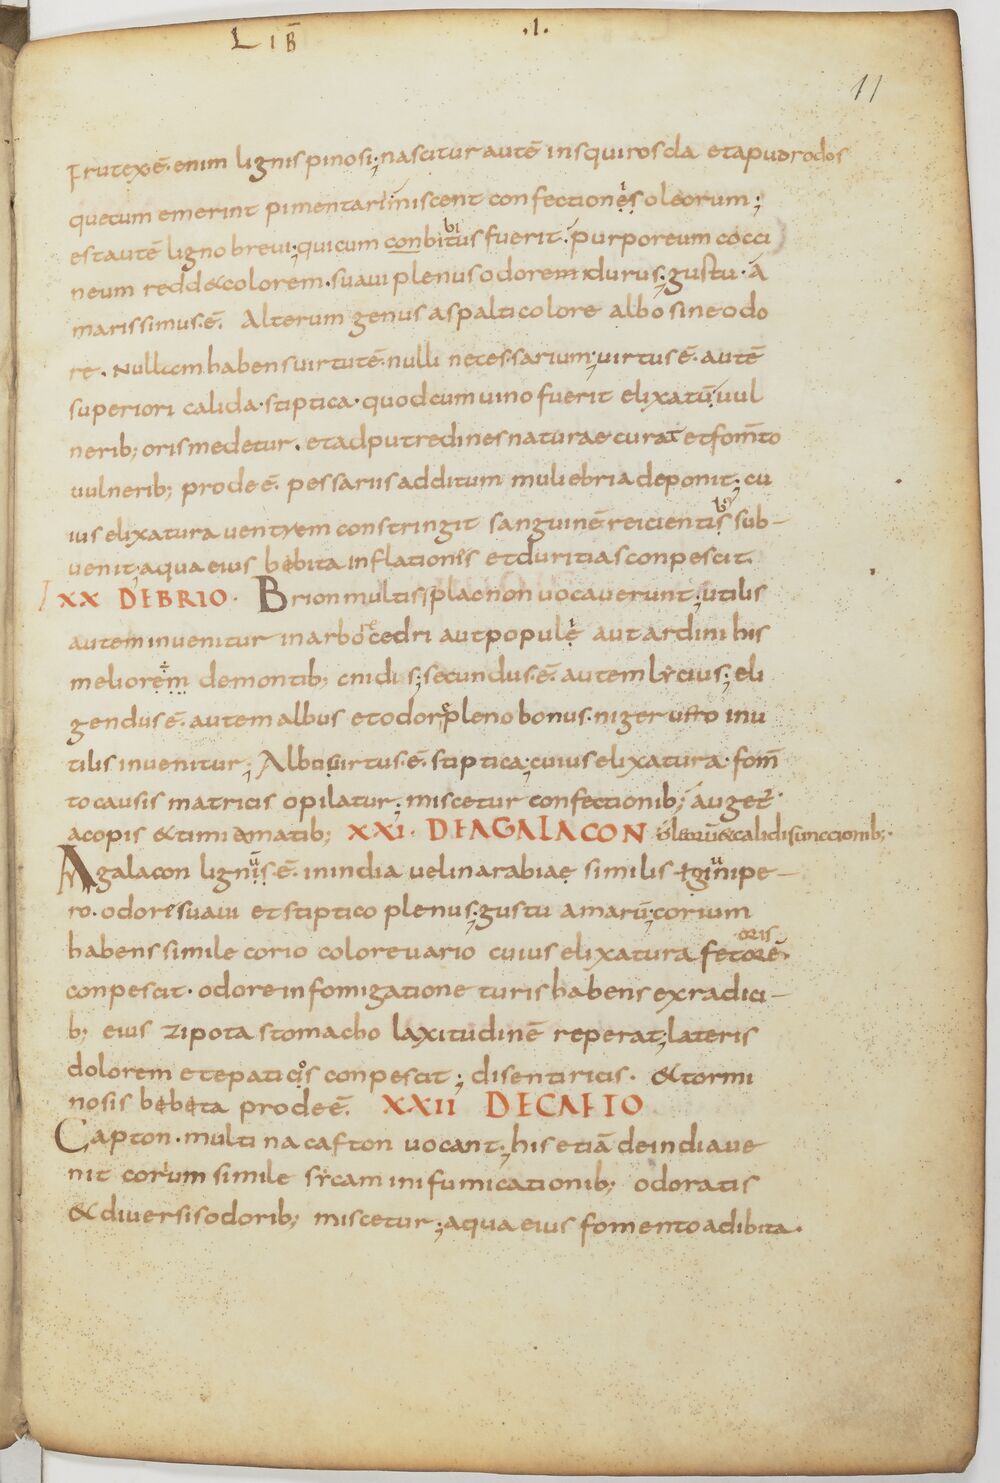 LIB̄ .I.
11
Frutex ē. enim lignis pinosi; nascitur autē insquiros cla et apud rodos
quecum emerint pimentarii miscent confectionis oleorum;
est autē ligno brevi; quicum conbitus fuerit. purporeum cocci
neum redd& colorem. suaui plenus odorem durus; gustu. a
marissimus. ē. Alterum genus aspalti colore albo sine odo
re. Nullam habens uirtutē. nulli necessarium; uirtus ē. autē
superiori calida. stiptica. quod cum uino fuerit elixatū uul
nerib; oris medetur. et ad putredines naturae curat et fom̄to
uulnerib; prode ē. pessariis additum muliebria deponit; cu
ius elixatura uentrem constringit sanguinē reicientis sub-
uenit; aqua eius bebita inflationes et duritias conpescit.
XX DE BRIO. Brion multi splacnon uocauerunt; utilis
autem inuenitur in arbore cedri aut populi aut ardini his
meliorem de montib; cnidis; secundus. ē. autem lycius; eli
gendus ē. autem albus et odore pleno bonus. niger uero inu
tilis inuenitur; Albo uirtus. ē. stiptica; cuius elixatura. fom̄
to causis matricis opilatur; miscetur confectionib; auget.
acopis & timiamatib; XXI. DE AGALACON oleorū & calidis uncctionib;.
Agalacon lignus. ē. in india uel in arabiae similis tginipe-
ro. odore suaui et stiptico plenus; gustu amarū; corium
habens simile corio colore uario cuius elixatura fetorē
oris
conpescit. odore in fomigatione turis habens ex radici-
b; eius zipota stomacho laxitudinē reperat; lateris
dolorem et epaticis conpescit; disentiricis. & tormi
nosis bebeta prode ē. XXII DE CAFTO
Capton. multi nacafton uocant; his etiā de india ue
nit corium simile sycamini fumicationib; odoratis
& diuersis odorib; miscetur; aqua eius fomento adibita.